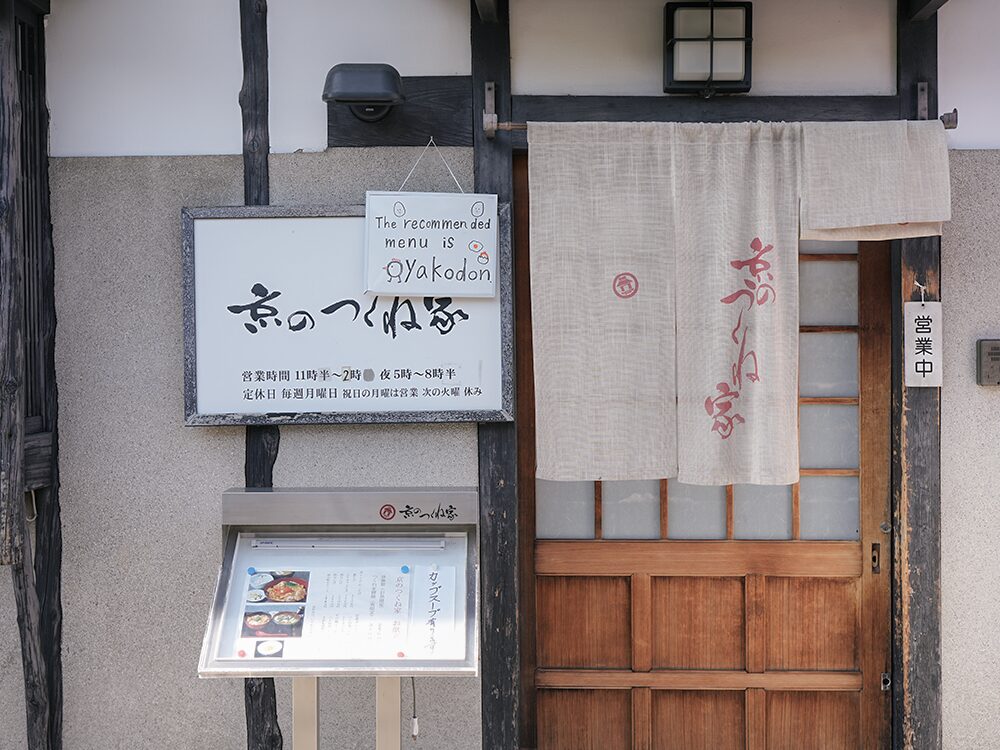 The recommended
menu is
Oyakodon
京のつくね家
営業時間 11時半～2時 夜5時～8時半
定休日 毎週月曜日 祝日の月曜は営業 次の火曜 休み
京のつくね家
営業中
京のつくね家
カップスープ有ります
京のつくね家 お献立